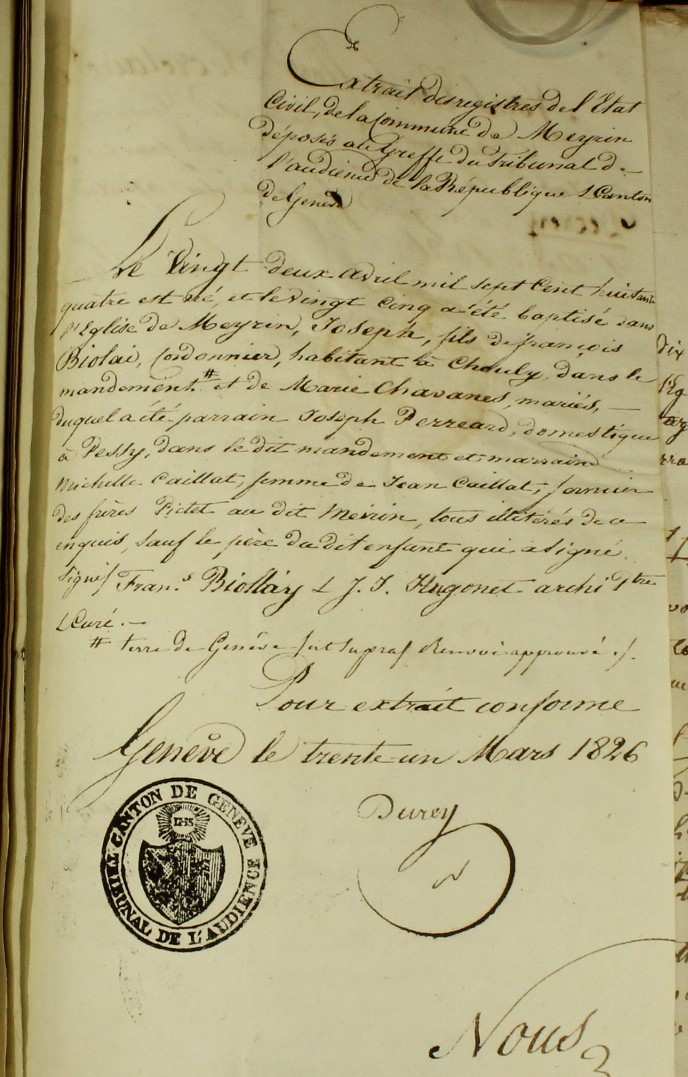 Extrait des registres de l'Etat
Civil, de la Commune de Meyrin
déposés au Greffe du Tribunal de
l'audience de la République & Canton
de Genève
Le vingt deux avril mil sept cent huitante
quatre est né, et le vingt cinq a été baptisé dans
l'Eglise de Meyrin, Joseph, fils de françois
Biolai, Cordonnier, habitant à Chouly dans le
mandement # et de Marie Chavanes, mariés, —
duquel a été parrain Joseph Perreard, domestique
à Pessy, dans le dit mandement et marraine
Michelle Caillat, femme de Jean Caillat, fermier
des frères Pictet au dit Meirin, tous illitérés de ce
enquis, sauf le père du dit enfant qui a signé.
Signé/ Fran.s Biollay & J. J. Hugonet archi prtre
& Curé. —
# terre de Genève / ut supra / Renvoi approuvé /.
Pour extrait conforme
Genève le trente-un Mars 1826
Durey
TRIBUNAL DE L'AUDIENCE
CANTON DE GENEVE
IHS
Nous